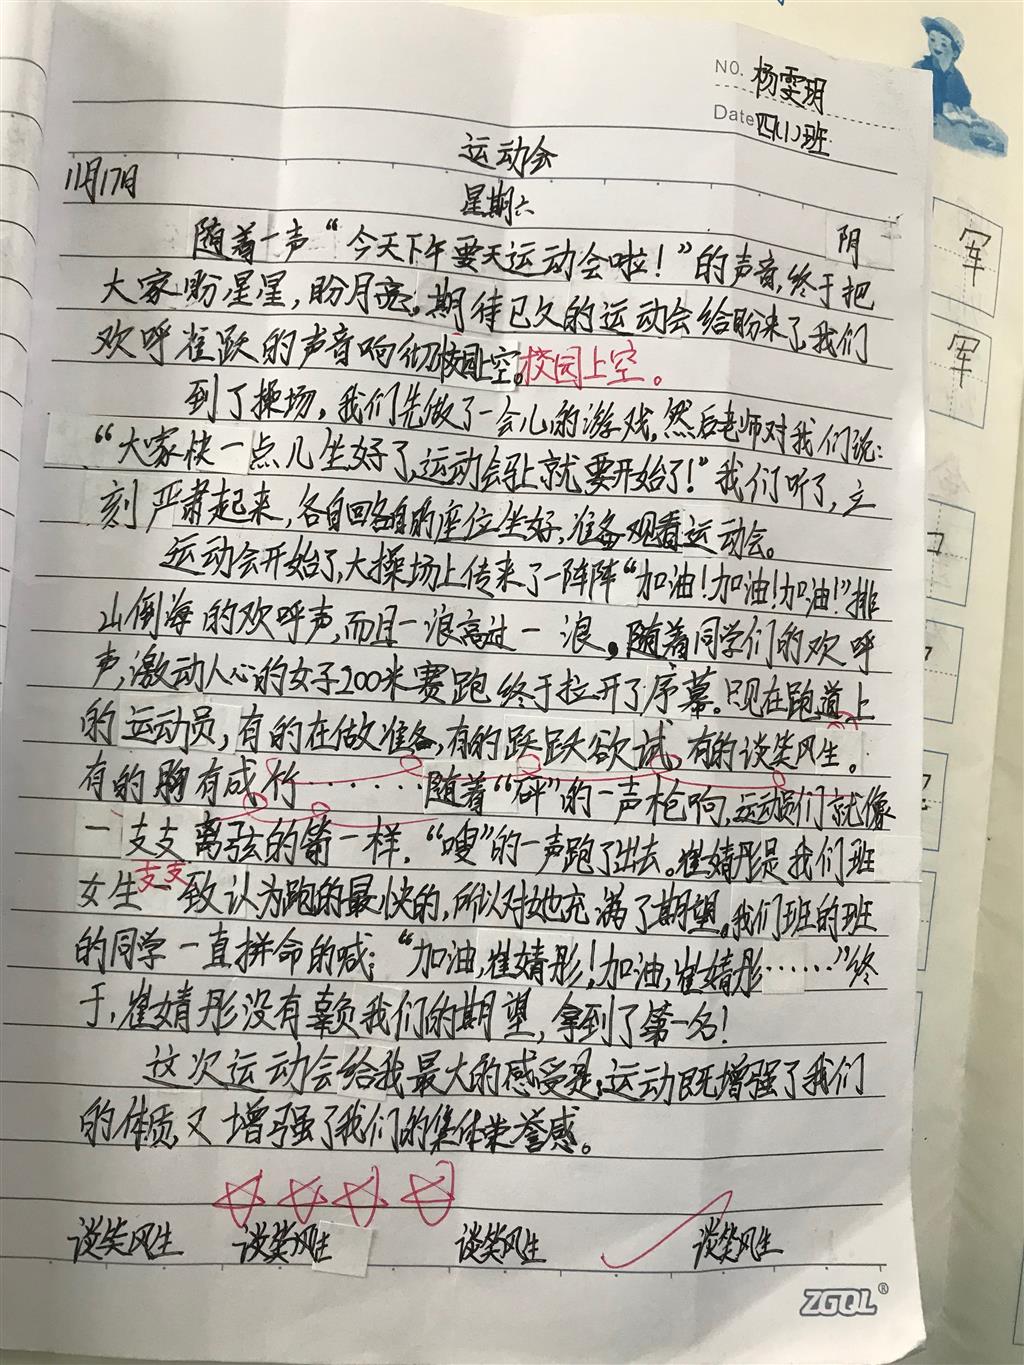 NO. 杨雯玥
Date 四(1)班
运动会
11月17日 星期六 阴
随着一声“今天下午要天运动会啦！”的声音,终于把
大家盼星星，盼月亮，期待已久的运动会给盼来了,我们
欢呼雀跃的声音响彻校园上空。校园上空。
到了操场，我们先做了一会儿的游戏,然后老师对我们说：
“大家快一点儿坐好了,运动会马上就要开始了！”我们听了,立
刻严肃起来,各自回各自的座位坐好,准备观看运动会。
运动会开始了,大操场上传来了一阵阵“加油！加油！加油！”排
山倒海的欢呼声,而且一浪高过一浪。随着同学们的欢呼
声,激动人心的女子200米赛跑终于拉开了序幕。只见在跑道上
的运动员,有的在做准备,有的跃跃欲试,有的谈笑风生。
有的胸有成竹……随着“砰”的一声枪响,运动员们就像
一支支离弦的箭一样，“嗖”的一声跑了出去。崔婧彤是我们班
支支
女生一致认为跑的最快的,所以对她充满了期望。我们班的班
的同学一直拼命的喊：“加油,崔婧彤！加油,崔婧彤……”终
于,崔婧彤没有辜负我们的期望，拿到了第一名！
这次运动会给我最大的感受是：运动既增强了我们
的体质,又增强了我们的集体荣誉感。
谈笑风生 谈笑风生 谈笑风生 谈笑风生
ZGQL®
军
军